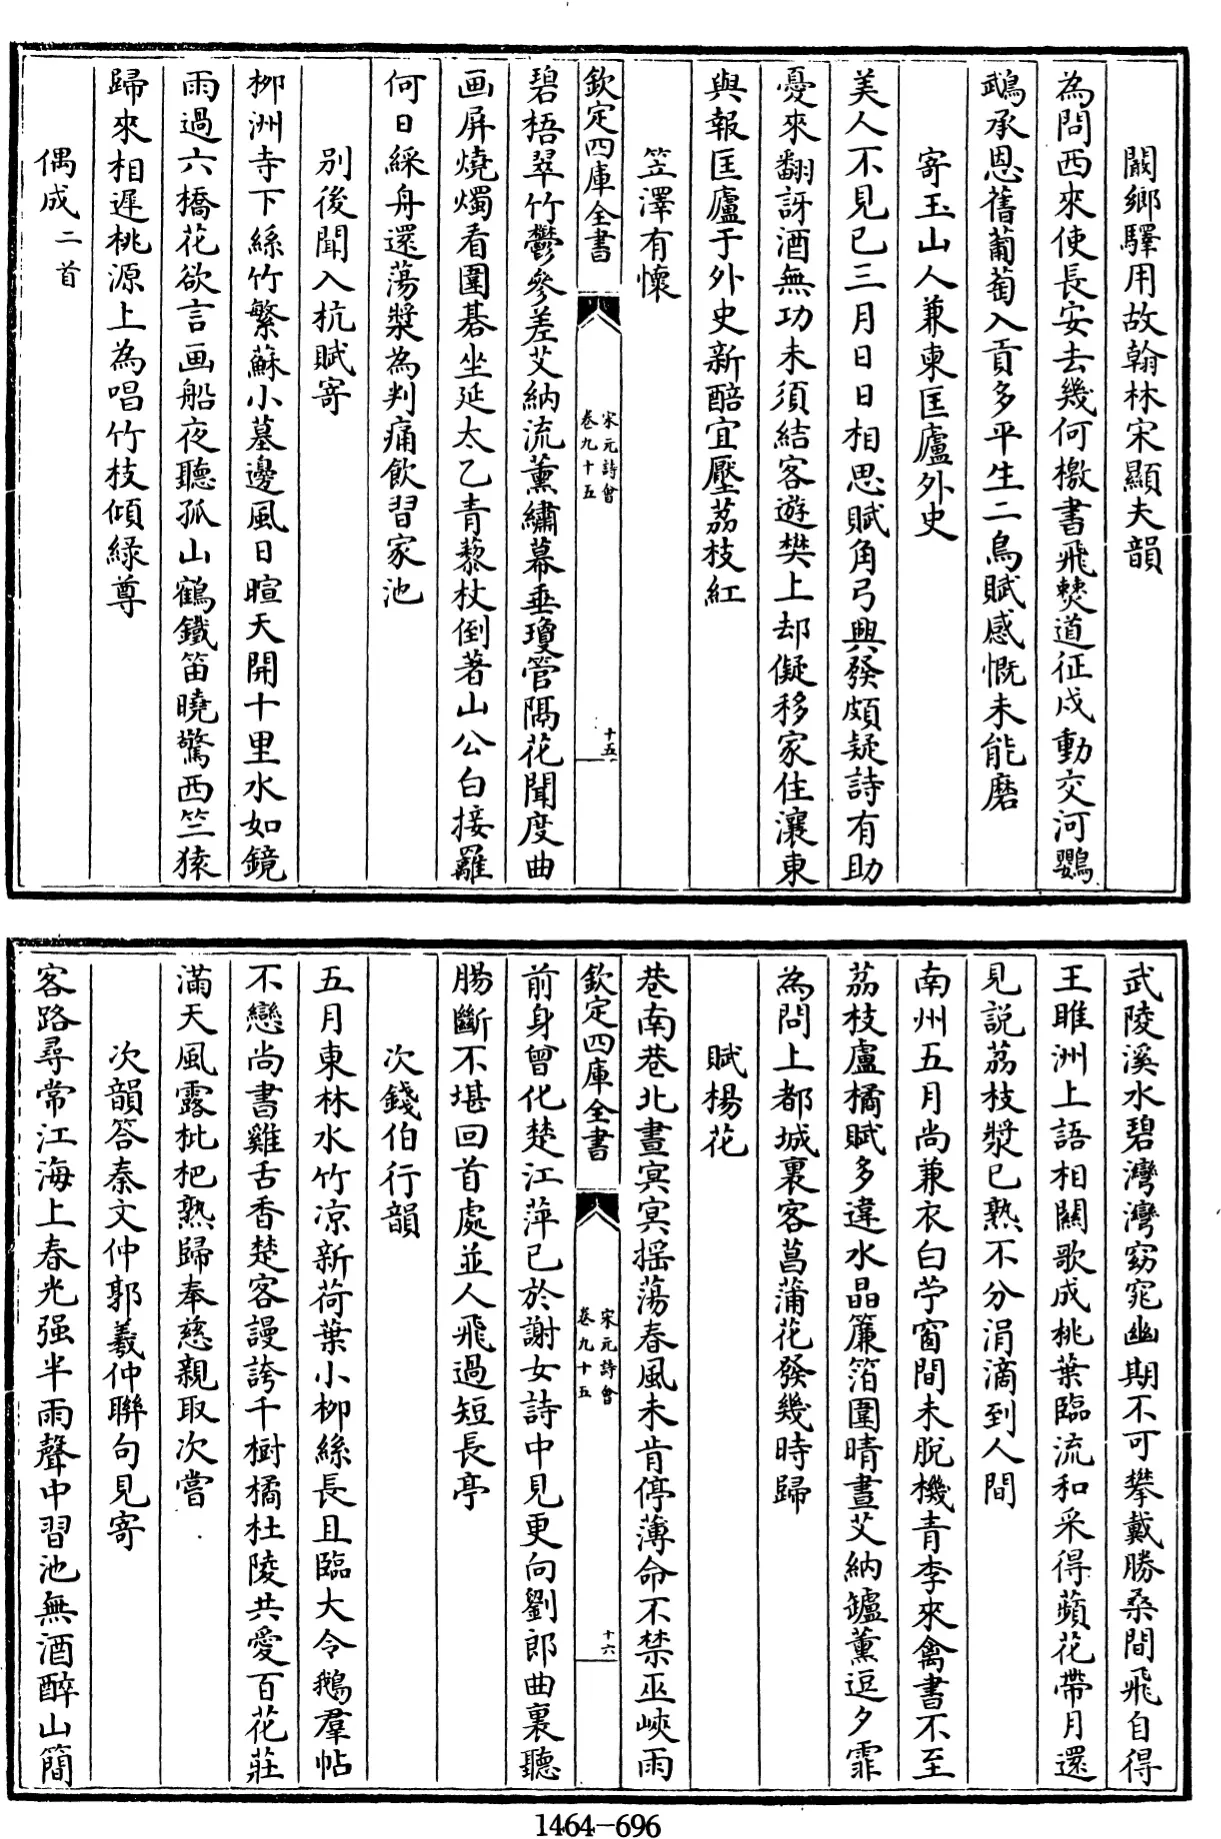 閿鄉驛用故翰林宋顯夫韻
為問西來使長安去幾何檄書飛僰道征戍動交河鸚
鵡承恩舊葡萄入貢多平生二鳥賦感慨未能磨
寄玉山人兼柬匡廬外史
美人不見已三月日日相思賦角弓興發頗疑詩有助
憂來翻訝酒無功未須結客遊樊上却儗移家住瀼東
與報匡廬于外史新醅宜壓荔枝紅
笠澤有懷
欽定四庫全書
宋元詩會
卷九十五
十五
碧梧翠竹鬱參差艾納流薰繡幕垂瓊管隔花聞度曲
画屏燒燭看圍碁坐延太乙青藜杖倒著山公白接䍦
何日綵舟還蕩漿為判痛飲習家池
别後聞入杭賦寄
柳洲寺下絲竹繁蘇小墓邊風日暄天開十里水如鏡
雨過六橋花欲言画船夜聽孤山鶴鐵笛曉驚西竺猿
歸來相遲桃源上為唱竹枝傾緑尊
偶成二首
武陵溪水碧灣灣窈窕幽期不可攀戴勝桑間飛自得
王雎洲上語相關歌成桃葉臨流和采得蘋花帶月還
見説荔枝漿已熟不分涓滴到人間
南州五月尚兼衣白苧窗間未脫機青李來禽書不至
荔枝盧橘賦多違水晶簾箔圍晴晝艾納罏薰逗夕霏
為問上都城裏客菖蒲花發幾時歸
賦楊花
巷南巷北晝冥冥揺蕩春風未肯停薄命不禁巫峽雨
欽定四庫全書
宋元詩會
卷九十五
十六
前身曾化楚江萍已於謝女詩中見更向劉郎曲裏聽
腸斷不堪回首處並人飛過短長亭
次錢伯行韻
五月東林水竹凉新荷葉小柳絲長且臨大令鵝羣帖
不戀尚書雞舌香楚客謾誇千樹橘杜陵共愛百花莊
滿天風露枇杷熟歸奉慈親取次嘗
次韻答秦文仲郭羲仲聨句見寄
客路尋常江海上春光强半雨聲中習池無酒醉山簡
1464-696